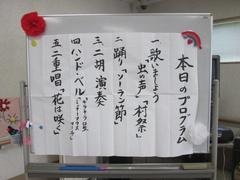 本日のプログラム
一、歌いましょう
「虫の声」「村祭」
二、踊り「ソーラン節」
三、二胡 演奏
四、ハンド・ベル
五、二重唱「花は咲く」